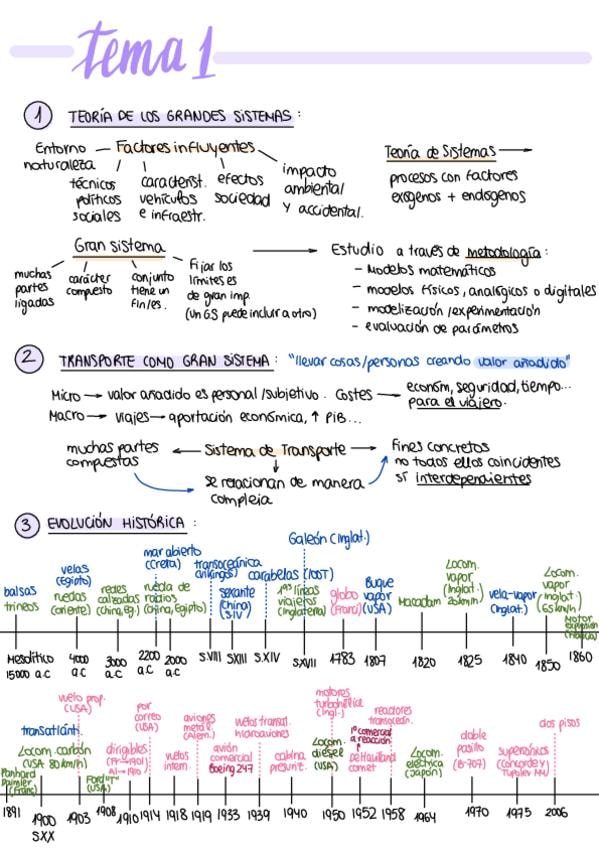 tema 1
1 TEORÍA DE LOS GRANDES SISTEMAS:
Entorno naturaleza — Factores influyentes
técnicos políticos sociales
característ. vehículos e infraestr.
efectos sociedad
impacto ambiental y accidental.
Teoría de Sistemas →
procesos con factores
exógenos + endógenos
Gran sistema
muchas partes ligadas
carácter compuesto
conjunto tiene un fin/es.
Fijar los límites es de gran imp. (un GS puede incluir a otro)
→ Estudio a través de metodología:
- Modelos matemáticos
- modelos físicos, analógicos o digitales
- modelización/experimentación
- evaluación de parámetros
2 TRANSPORTE COMO GRAN SISTEMA: "llevar cosas/personas creando valor añadido"
Micro → valor añadido es personal/subjetivo. Costes → económ, seguridad, tiempo... para el viajero.
Macro → viajes → aportación económica, ↑ PiB...
muchas partes compuestas ← Sistema de Transporte → Fines concretos
no todos ellos coincidentes
sí interdependientes
se relacionan de manera compleja
3 EVOLUCIÓN HISTÓRICA:
Galeón (Inglat.)
balsas
trineos
velas (Egipto)
ruedas (oriente)
redes calzadas (china, Eg.)
mar abierto (creta)
rueda de radios (china, Egipto)
transoceánica (vikingos)
sextante (china) S.IV
carabelas (100T)
1as líneas viajeros (Inglaterra)
globo (Franc)
Buque vapor (USA)
Macadam
Locom. vapor (Inglat.) 20km/h
vela-vapor (Inglat.)
Locom. vapor (Inglat.) 65km/h
Motor explosión
Mesolítico 15000 a.C
4000 a.C
3000 a.C
2200 a.C
2000 a.C
S.VIII SXIII S.XIV SXVII 1783 1807 1820 1825 1840 1850 1860
vuelo prop. (USA)
transatlánt.
Locom. carbón (USA 80km/h)
Panhard
Ford "T" (USA)
dirigibles
por correo (USA)
vuelos intern.
aviones metál. (Alem.)
avión comercial Boeing 247
vuelos transat. hidroaviones
cabina presuriz.
motores turbohélice (Ingl.)
Locom. diésel (USA)
1º comercial a reacción
De Havilland comet
reactores transoceán.
Locom. eléctrica (Japón)
doble pasillo (B-707)
supersónicos (Concorde y Tupolev 144)
dos pisos
1891 1900 SXX 1903 1908 1910 1914 1918 1919 1933 1939 1940 1950 1952 1958 1964 1970 1975 2006